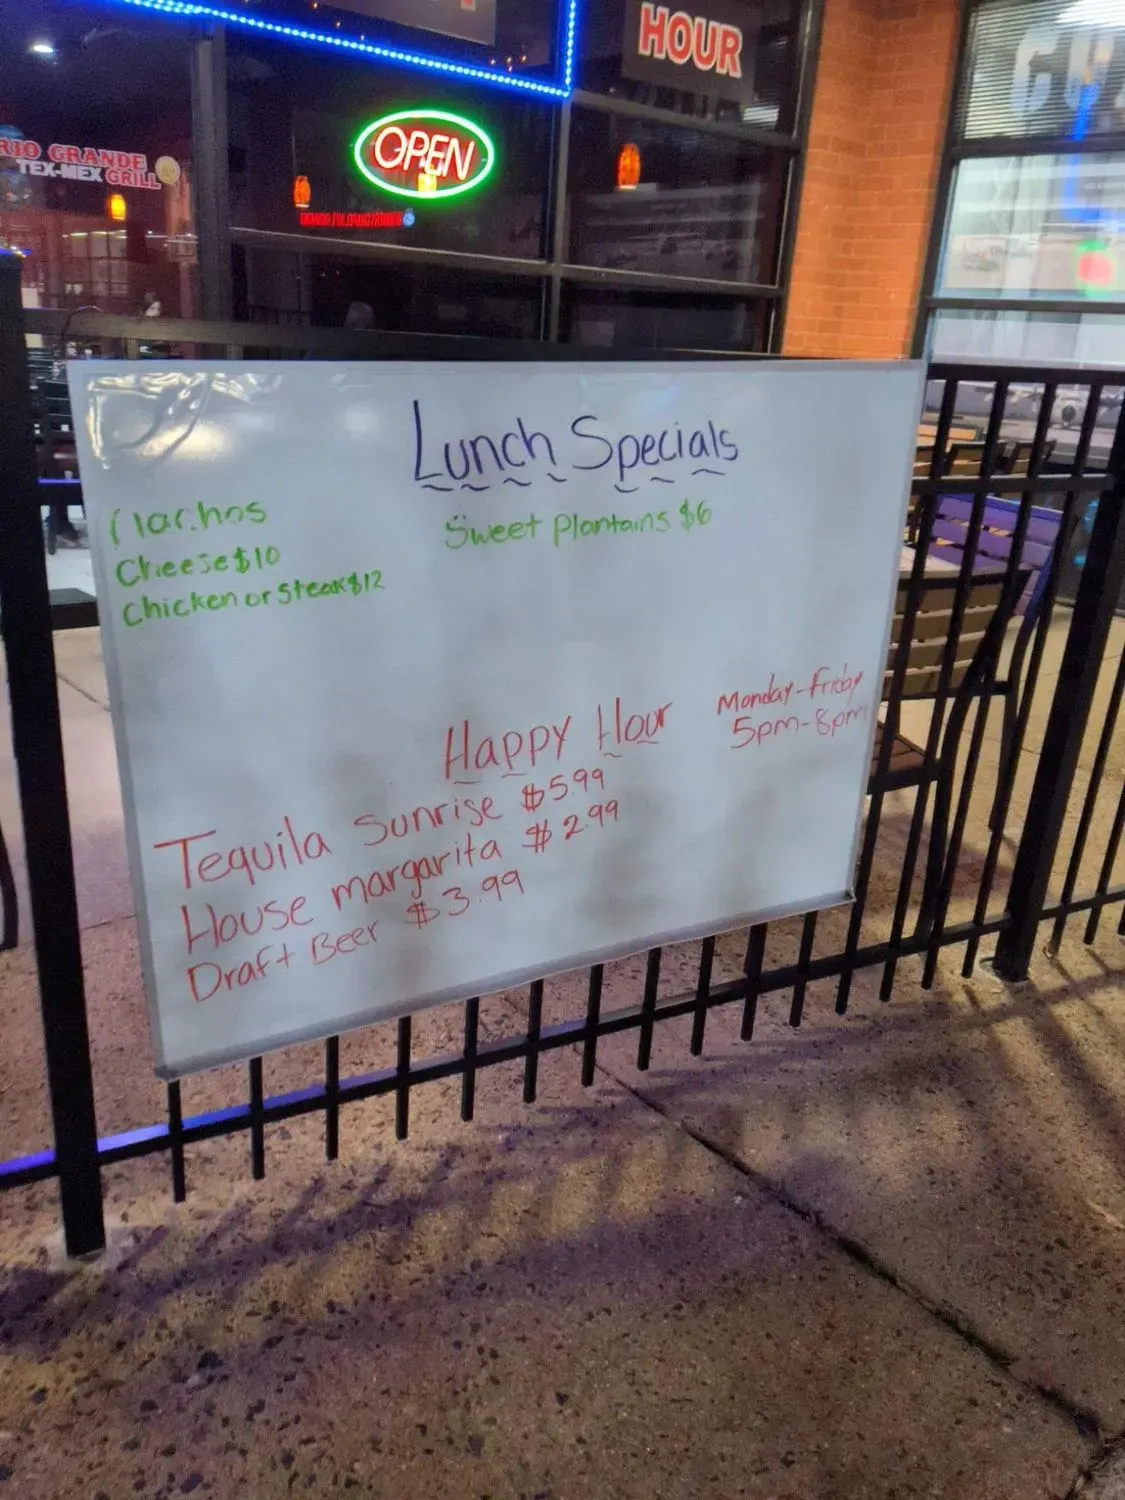 HOUR
OPEN
RIO GRANDE
TEX-MEX GRILL
Lunch Specials
Nachos
Cheese $10
Chicken or Steak $12
Sweet Plantains $6
Happy Hour
Monday-Friday
5pm-8pm
Tequila Sunrise $5.99
House margarita $2.99
Draft Beer $3.99